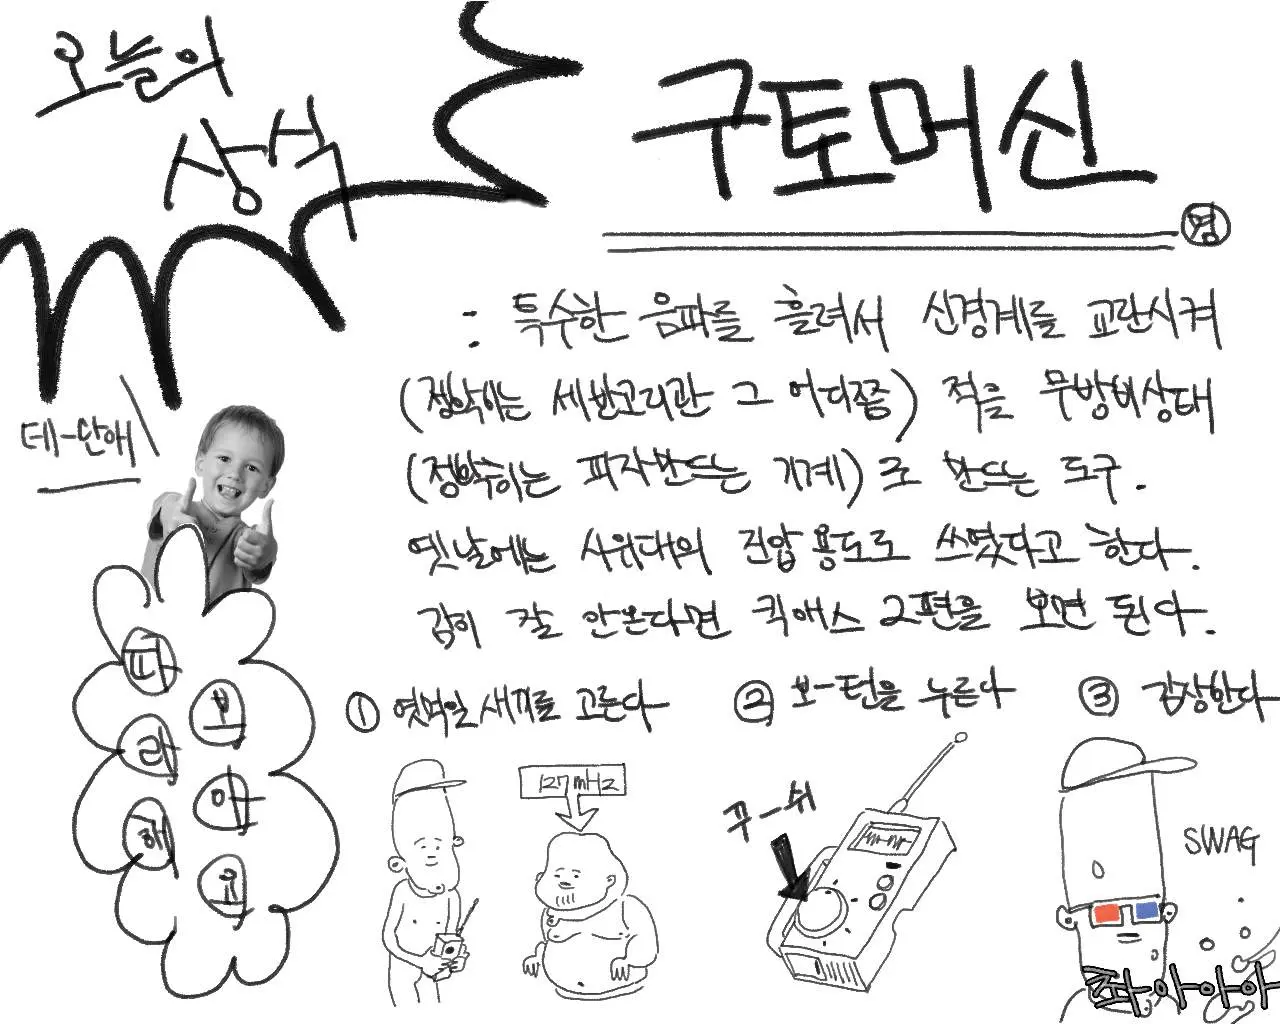 오늘의
상식
구토머신
명
: 특수한 음파를 흘려서 신경계를 교란시켜
(정확히는 세반고리관 그 어디쯤) 적을 무방비상태
(정확히는 피자만드는 기계)로 만드는 도구.
옛날에는 시위대의 진압 용도로 쓰였다고 한다.
감히 잘 안온다면 킥애스 2편을 보면 된다.
데-단해
파
보
라
아
해
요
① 엿먹일 새끼를 고른다
② 보-턴을 누른다
③ 감상한다
127mHz
꾸-쉬
SWAG
좌아아아